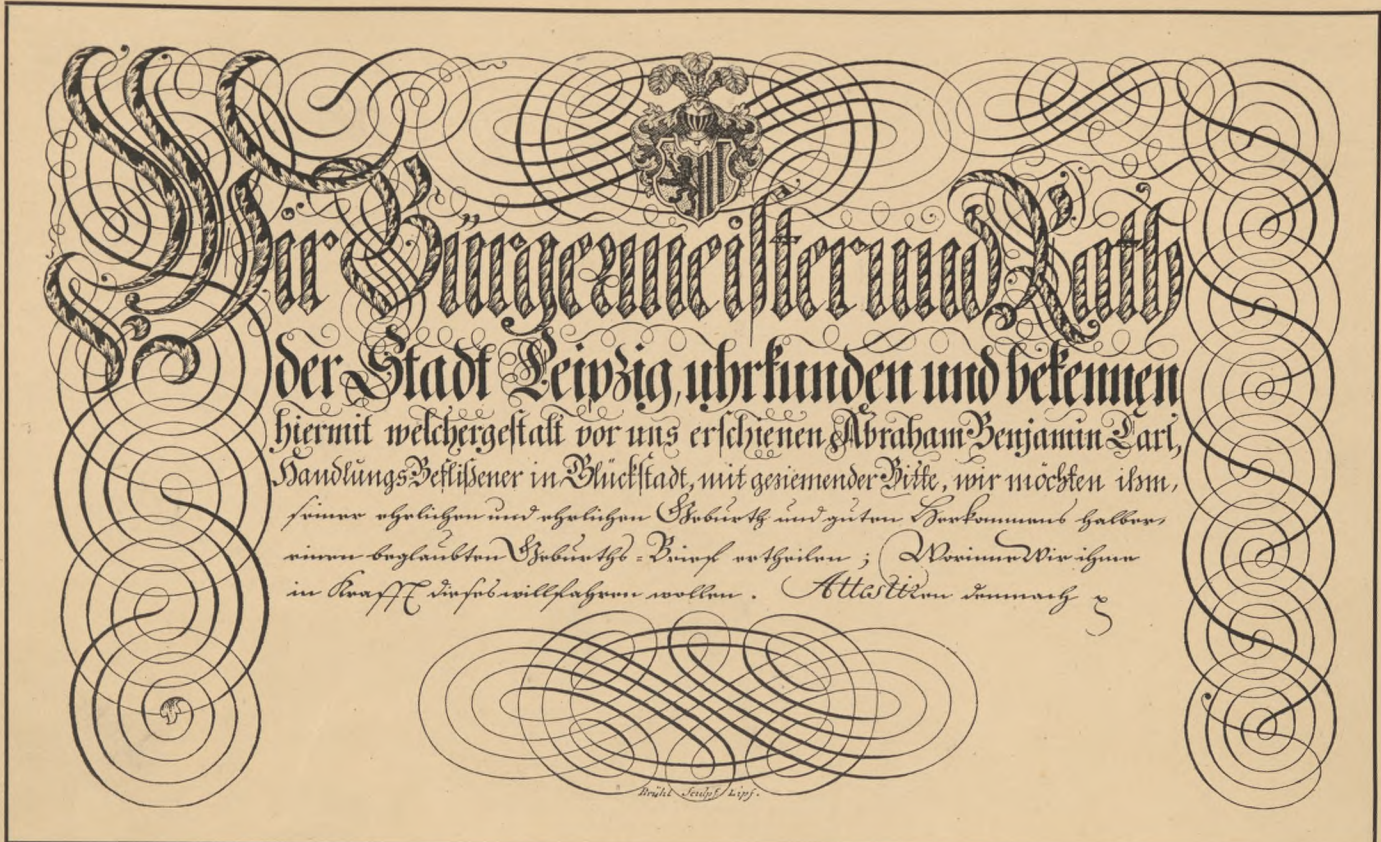 Wir Bürgermeister und Rath
der Stadt Leipzig, uhrkunden und bekennen
hiermit welchergestalt vor uns erschienen Abraham Benjamin Carl,
Handlungs Beflißener in Glückstadt, mit geziemender Bitte, wir möchten ihm,
seiner ehrlichen und ehelichen Geburth und guten Herkommens halber,
einen beglaubten Geburths-Brief ertheilen; Worinne Wir ihme
in Krafft dieses willfahren wollen. Attestiren demnach
Brühl Sculps. Lips.